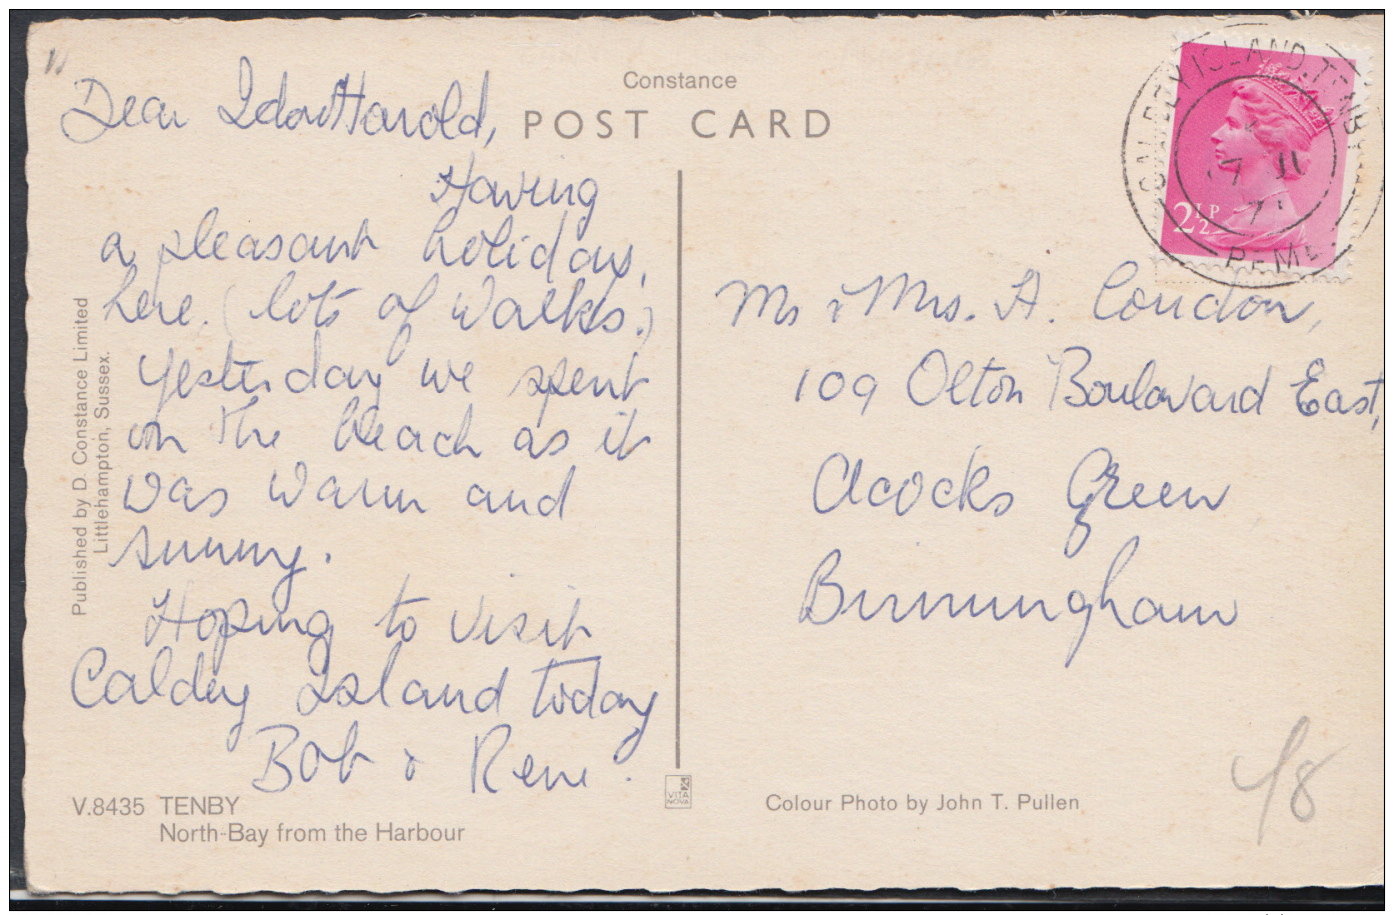 Constance
POST CARD
Dear Ida & Harold,
Having
a pleasant holiday,
here. (lots of walks.)
Yesterday we spent
on the beach as it
was warm and
sunny.
Hoping to visit
Caldey Island today
Bob & Rene.
Published by D. Constance Limited
Littlehampton, Sussex.
V.8435 TENBY
North-Bay from the Harbour
VITA
NOVA
CALDEY ISLAND. TENBY
7 JU
7
PEMB
2½P
Mr & Mrs. H. Condon,
109 Olton Boulavard East,
Acocks Green
Birmingham
Colour Photo by John T. Pullen
/8